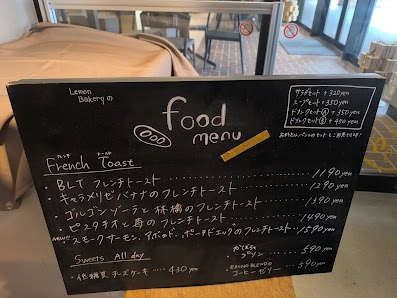 Lemon
Bakery の
food
menu
サラダセット +320yen
スープセット +350yen
ドリンクセットⒶ +350yen
ドリンクセットⒷ +450yen
フレンチ トースト
French Toast
・BLT フレンチトースト 1190yen
・キャラメリゼバナナのフレンチトースト 1290yen
・ゴルゴンゾーラと林檎のフレンチトースト 1390yen
・ピスタチオと苺のフレンチトースト 1490yen
NEW!! スモークサーモン、アボカド、ポーチドエッグのフレンチトースト 1590yen
Sweets All day
・低糖質 チーズケーキ 430yen
プリン 590yen
コーヒーゼリー 590yen